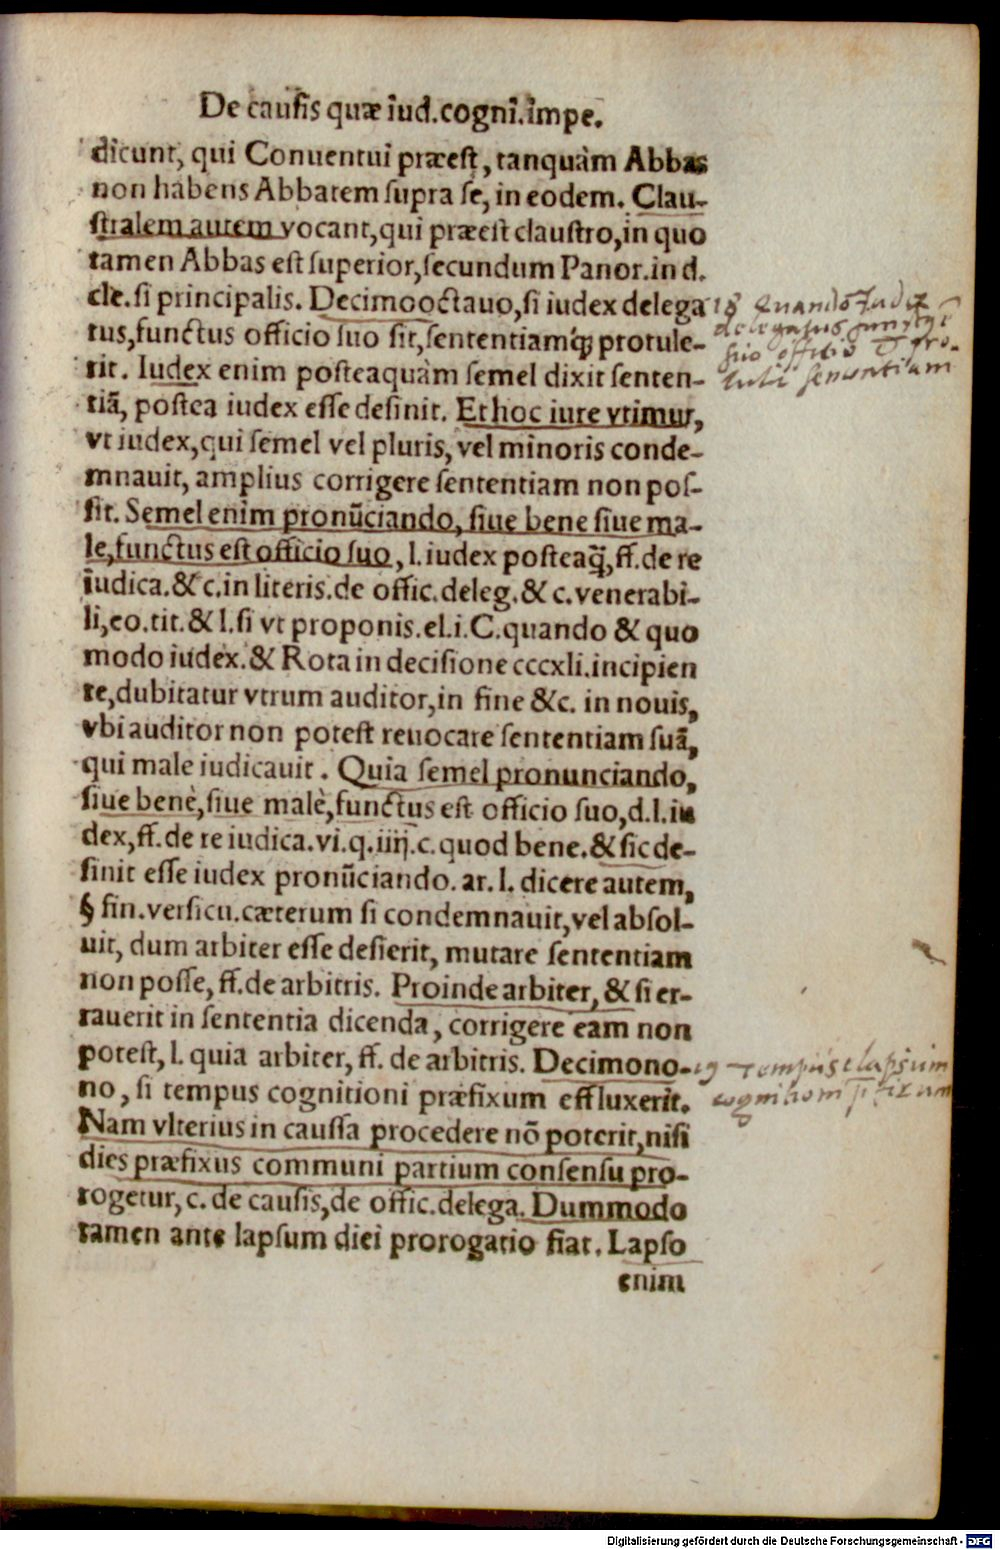 De causis quæ iud.cogni.impe.
dicunt, qui Conuentui præest, tanquàm Abbas
non habens Abbatem supra se, in eodem. Clau-
stralem autem vocant, qui præest claustro, in quo
tamen Abbas est superior, secundum Panor. in d.
cle. si principalis. Decimooctauo, si iudex delega
tus, functus officio suo sit, sententiamq́; protule-
rit. Iudex enim posteaquàm semel dixit senten-
tiā, postea iudex esse desinit. Et hoc iure vtimur,
vt iudex, qui semel vel pluris, vel minoris conde-
mnauit, amplius corrigere sententiam non pos-
sit. Semel enim pronūciando, siue bene siue ma-
le, functus est officio suo, l. iudex posteaq̄, ff. de re
iudica. & c. in literis. de offic. deleg. & c. venerabi-
li, eo. tit. & l. si vt proponis. el. i. C. quando & quo
modo iudex. & Rota in decisione cccxli. incipien
te, dubitatur vtrum auditor, in fine & c. in nouis,
vbi auditor non potest reuocare sententiam suā,
qui male iudicauit. Quia semel pronunciando,
siue benè, siue malè, functus est officio suo, d. l. iu
dex, ff. de re iudica. vi. q. iiij. c. quod bene. & sic de-
sinit esse iudex pronūciando. ar. l. dicere autem,
§ fin. versicu. cæterum si condemnauit, vel absol-
uit, dum arbiter esse desierit, mutare sententiam
non posse, ff. de arbitris. Proinde arbiter, & si er-
rauerit in sententia dicenda, corrigere eam non
potest, l. quia arbiter, ff. de arbitris. Decimono-
no, si tempus cognitioni præfixum effluxerit.
Nam vlterius in caussa procedere nō poterit, nisi
dies præfixus communi partium consensu pro-
rogetur, c. de causis, de offic. delega. Dummodo
tamen ante lapsum diei prorogatio fiat. Lapso
enim
18 Quando Iudex
delegatus
suo offitio pro-
tulit sententiam
19 Tempus elapsum
cognitioni
Digitalisierung gefördert durch die Deutsche Forschungsgemeinschaft - DFG